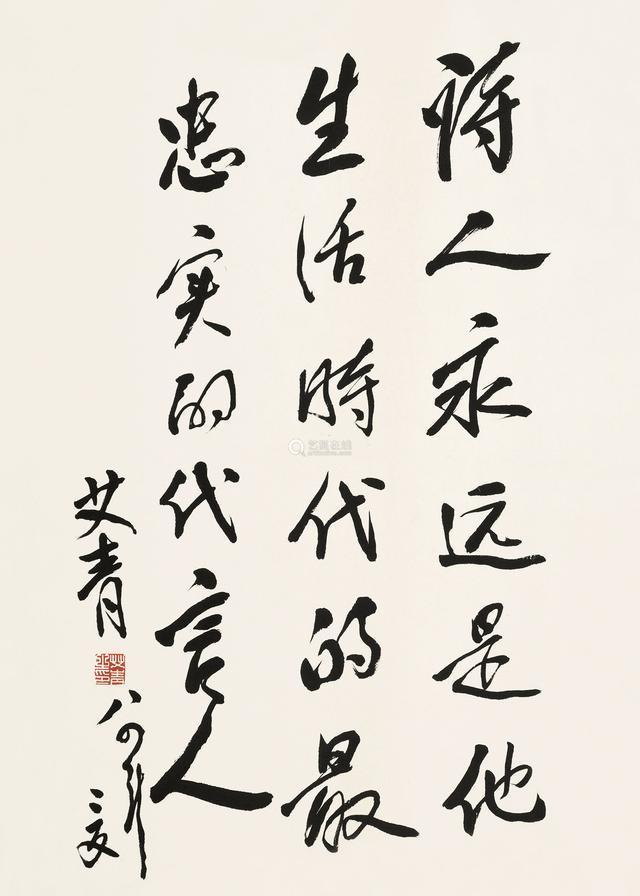 詩人永远是他
生活時代的最
忠实的代言人
艾青
八四年
艺狐在线